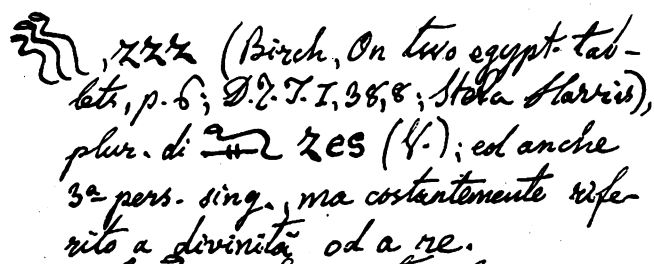 , zzz (Birch, On two egypt. tab-
lets, p. 6; D. Z. T. I, 38, 8; Stela Harris),
plur. di zes (V.); ed anche
3ª pers. sing., ma costantemente rife-
rito a divinità od a re.